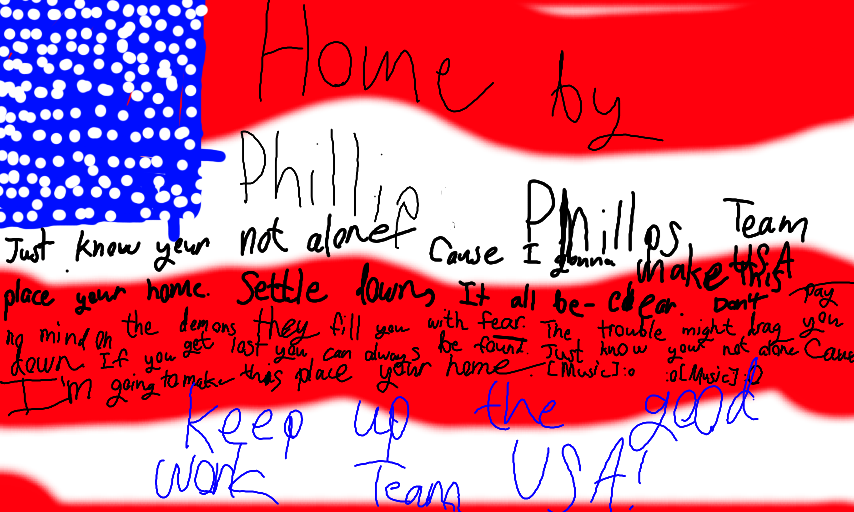 Home by
Phillip Phillps Team USA
Just know your not alone Cause I gonna make this
place your home. Settle down, It all be clear. Don't pay
no mind on the demons they fill you with fear. The trouble might drag you
down If you get last you can always be found Just know your not alone Cause
I'm going to make this place your home [Music]:o :o[Music]:O
Keep up the good
work Team USA!